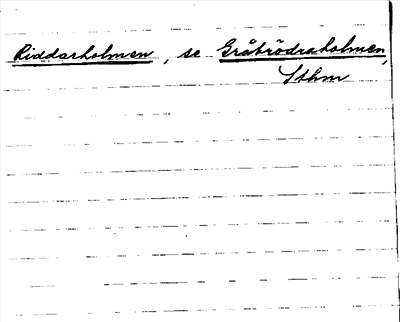 Riddarholmen, se Gråbrödraholmen,
Sthm